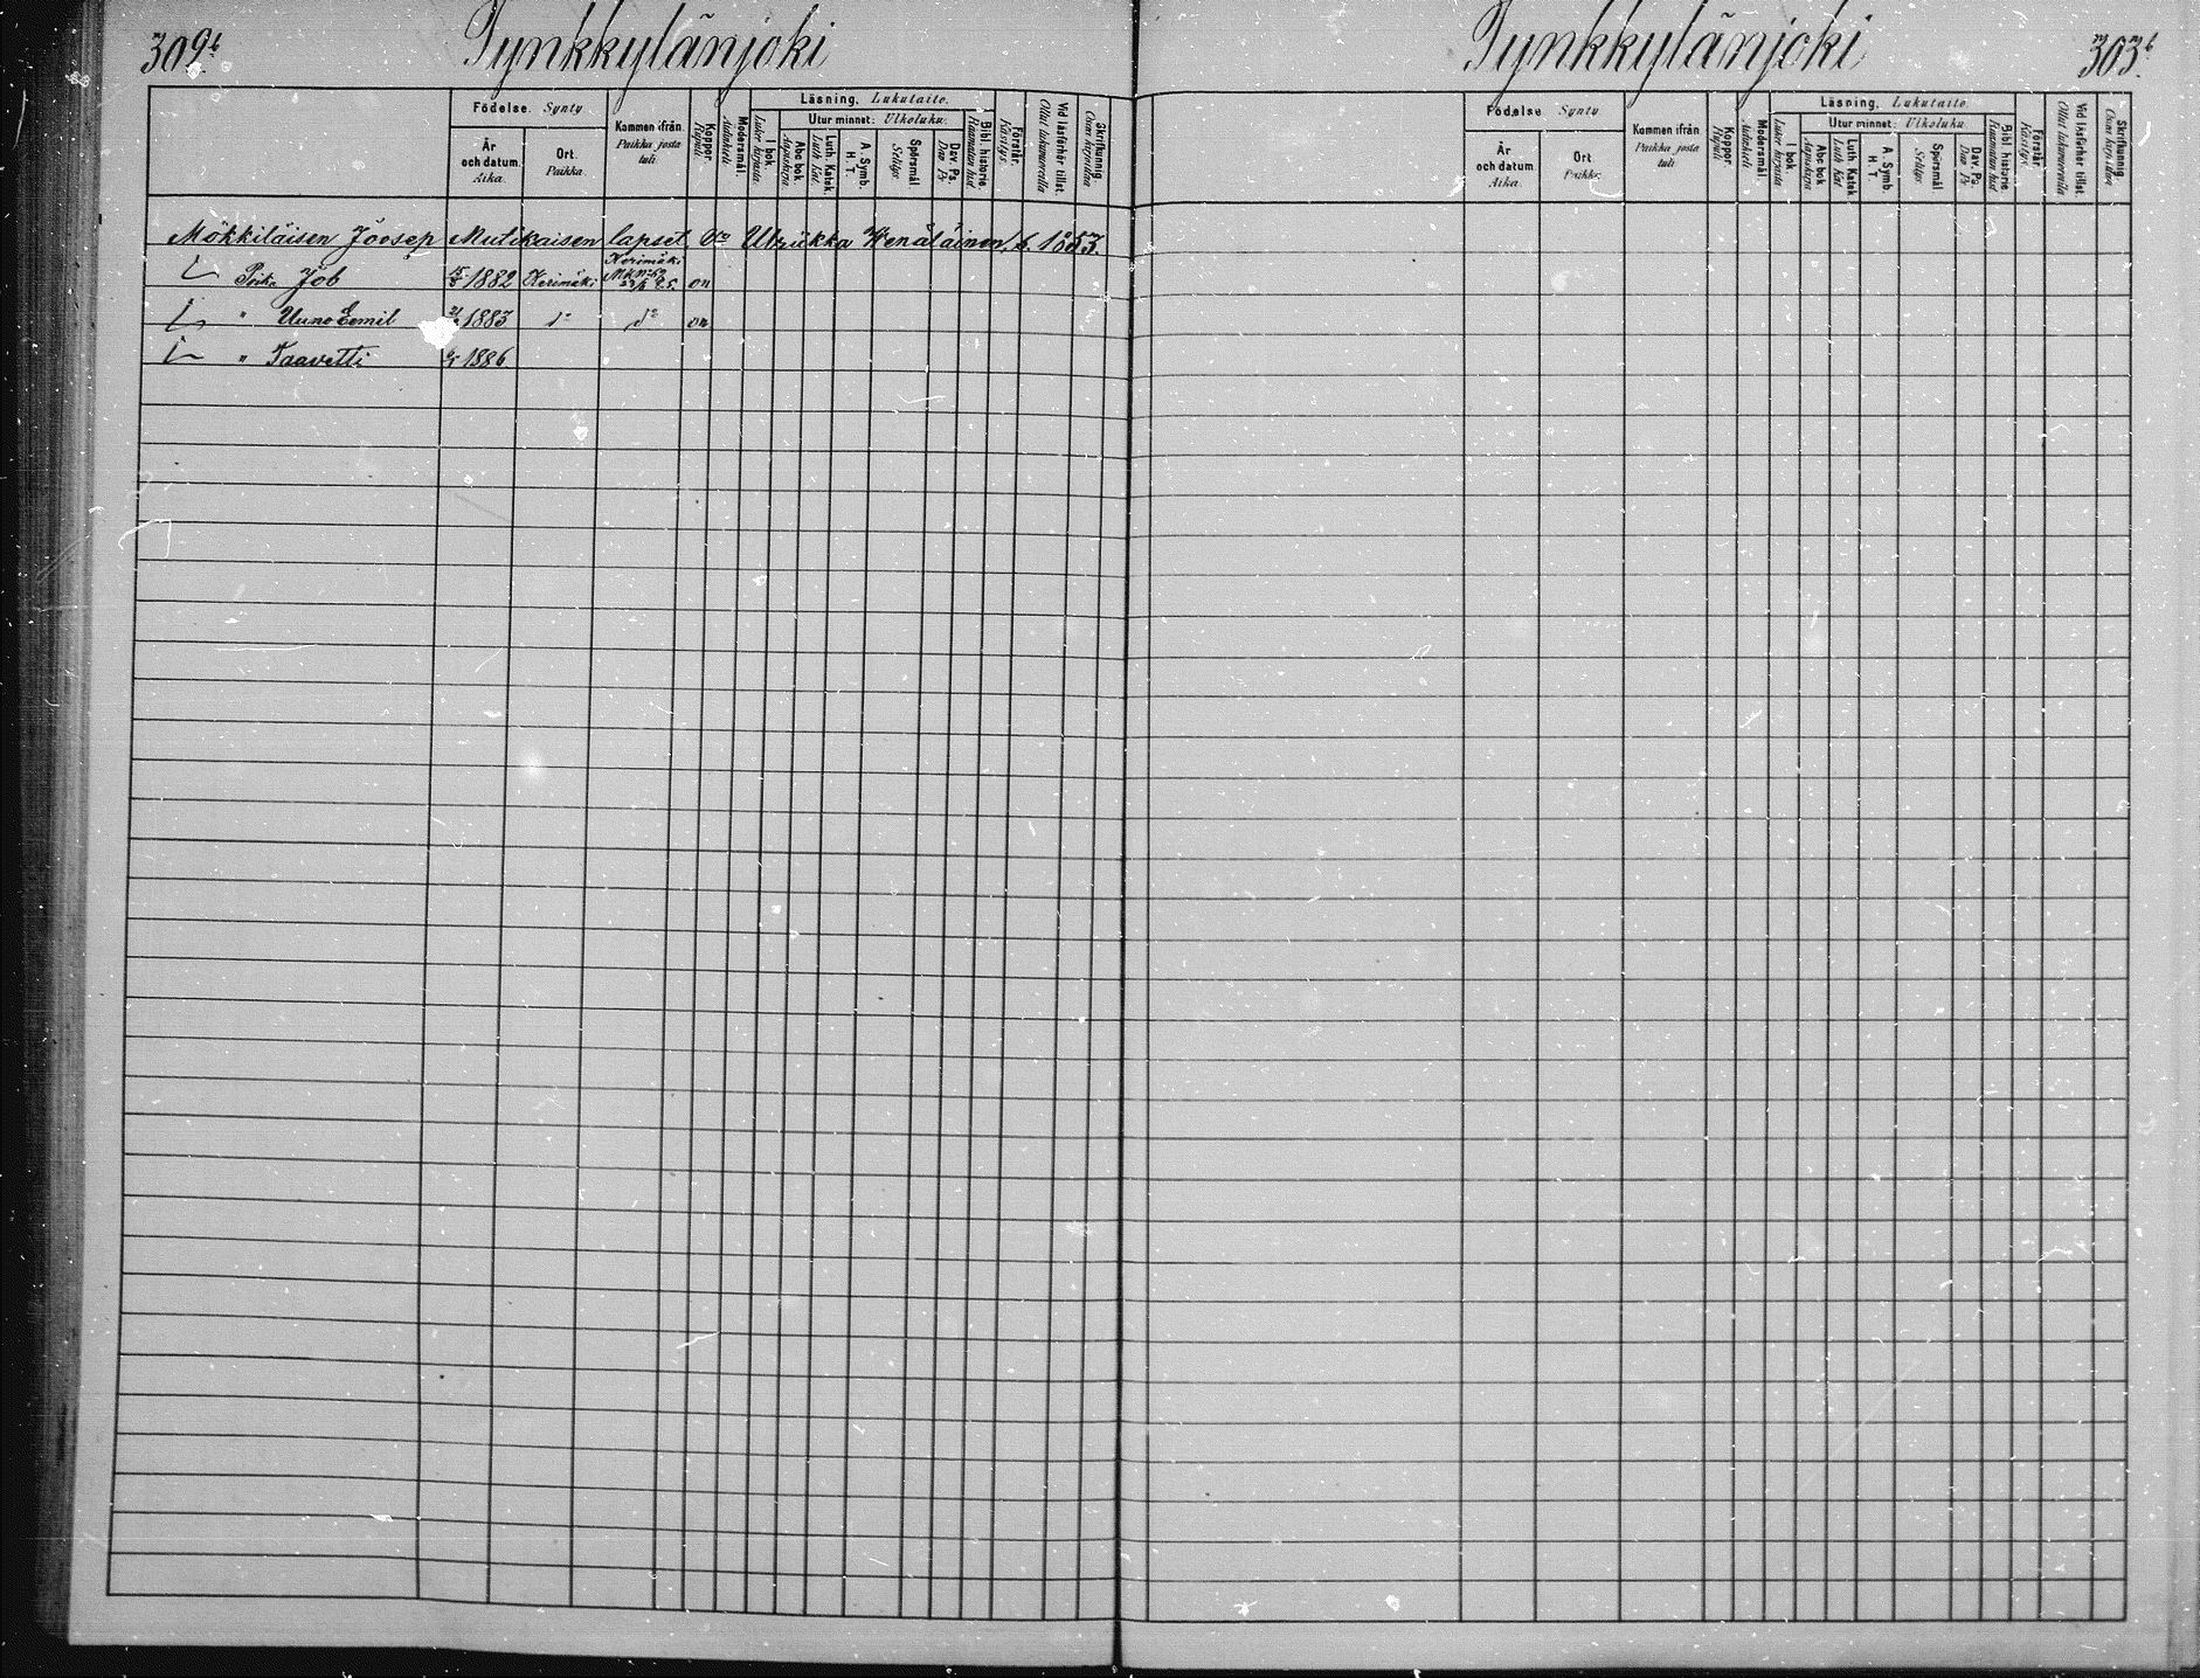 309b.
Tynkkylänjoki
Födelse. Synty
Kommen ifrån.
Paikka josta
tuli
Koppor.
Rupuli
Modersmål.
Äidinkieli
Läsning. Lukutaito.
I bok.
Lukee kirjasta
Utur minnet: Ulkoluku.
Abc bok
Aapiskirja
Luth. Katek.
Luth Kat.
A. Symb.
H. T.
Spörsmål
Selitys
Dav. Ps.
Dav Ps
Bibl. historie
Raamatun hist.
Förstår.
Käsitys.
Vid läsförhör tillst.
Ollut lukukuorolla
Skrifkunnig.
Osaa kirjoittaa
År
och datum.
Aika.
Ort.
Paikka.
Mökkiläisen Joosep Mutikaisen lapset, Vo Ulriikka Wenäläinen, s. 1853.
Poika Job 1882 Kerimäki Kerimäki on
" Uuno Eemil 1883 do do on
" Taavetti 1886.
Tynkkylänjoki
303b.
Födelse Synty
Kommen ifrån
Paikka josta
tuli
Koppor.
Rupuli
Modersmål.
Äidinkieli
Läsning. Lukutaito
I bok.
Lukee kirjasta
Utur minnet: Ulkoluku
Abc bok
Aapiskirja
Luth. Katek.
Luth Kat
A. Symb.
H. T.
Spörsmål
Selitys
Dav. Ps.
Dav Ps
Bibl. historie
Raamatun hist
Förstår.
Käsitys
Vid läsförhör tillst.
Ollut lukukuorolla
Skrifkunnig.
Osaa kirjoittaa
År
och datum
Aika.
Ort
Paikka.